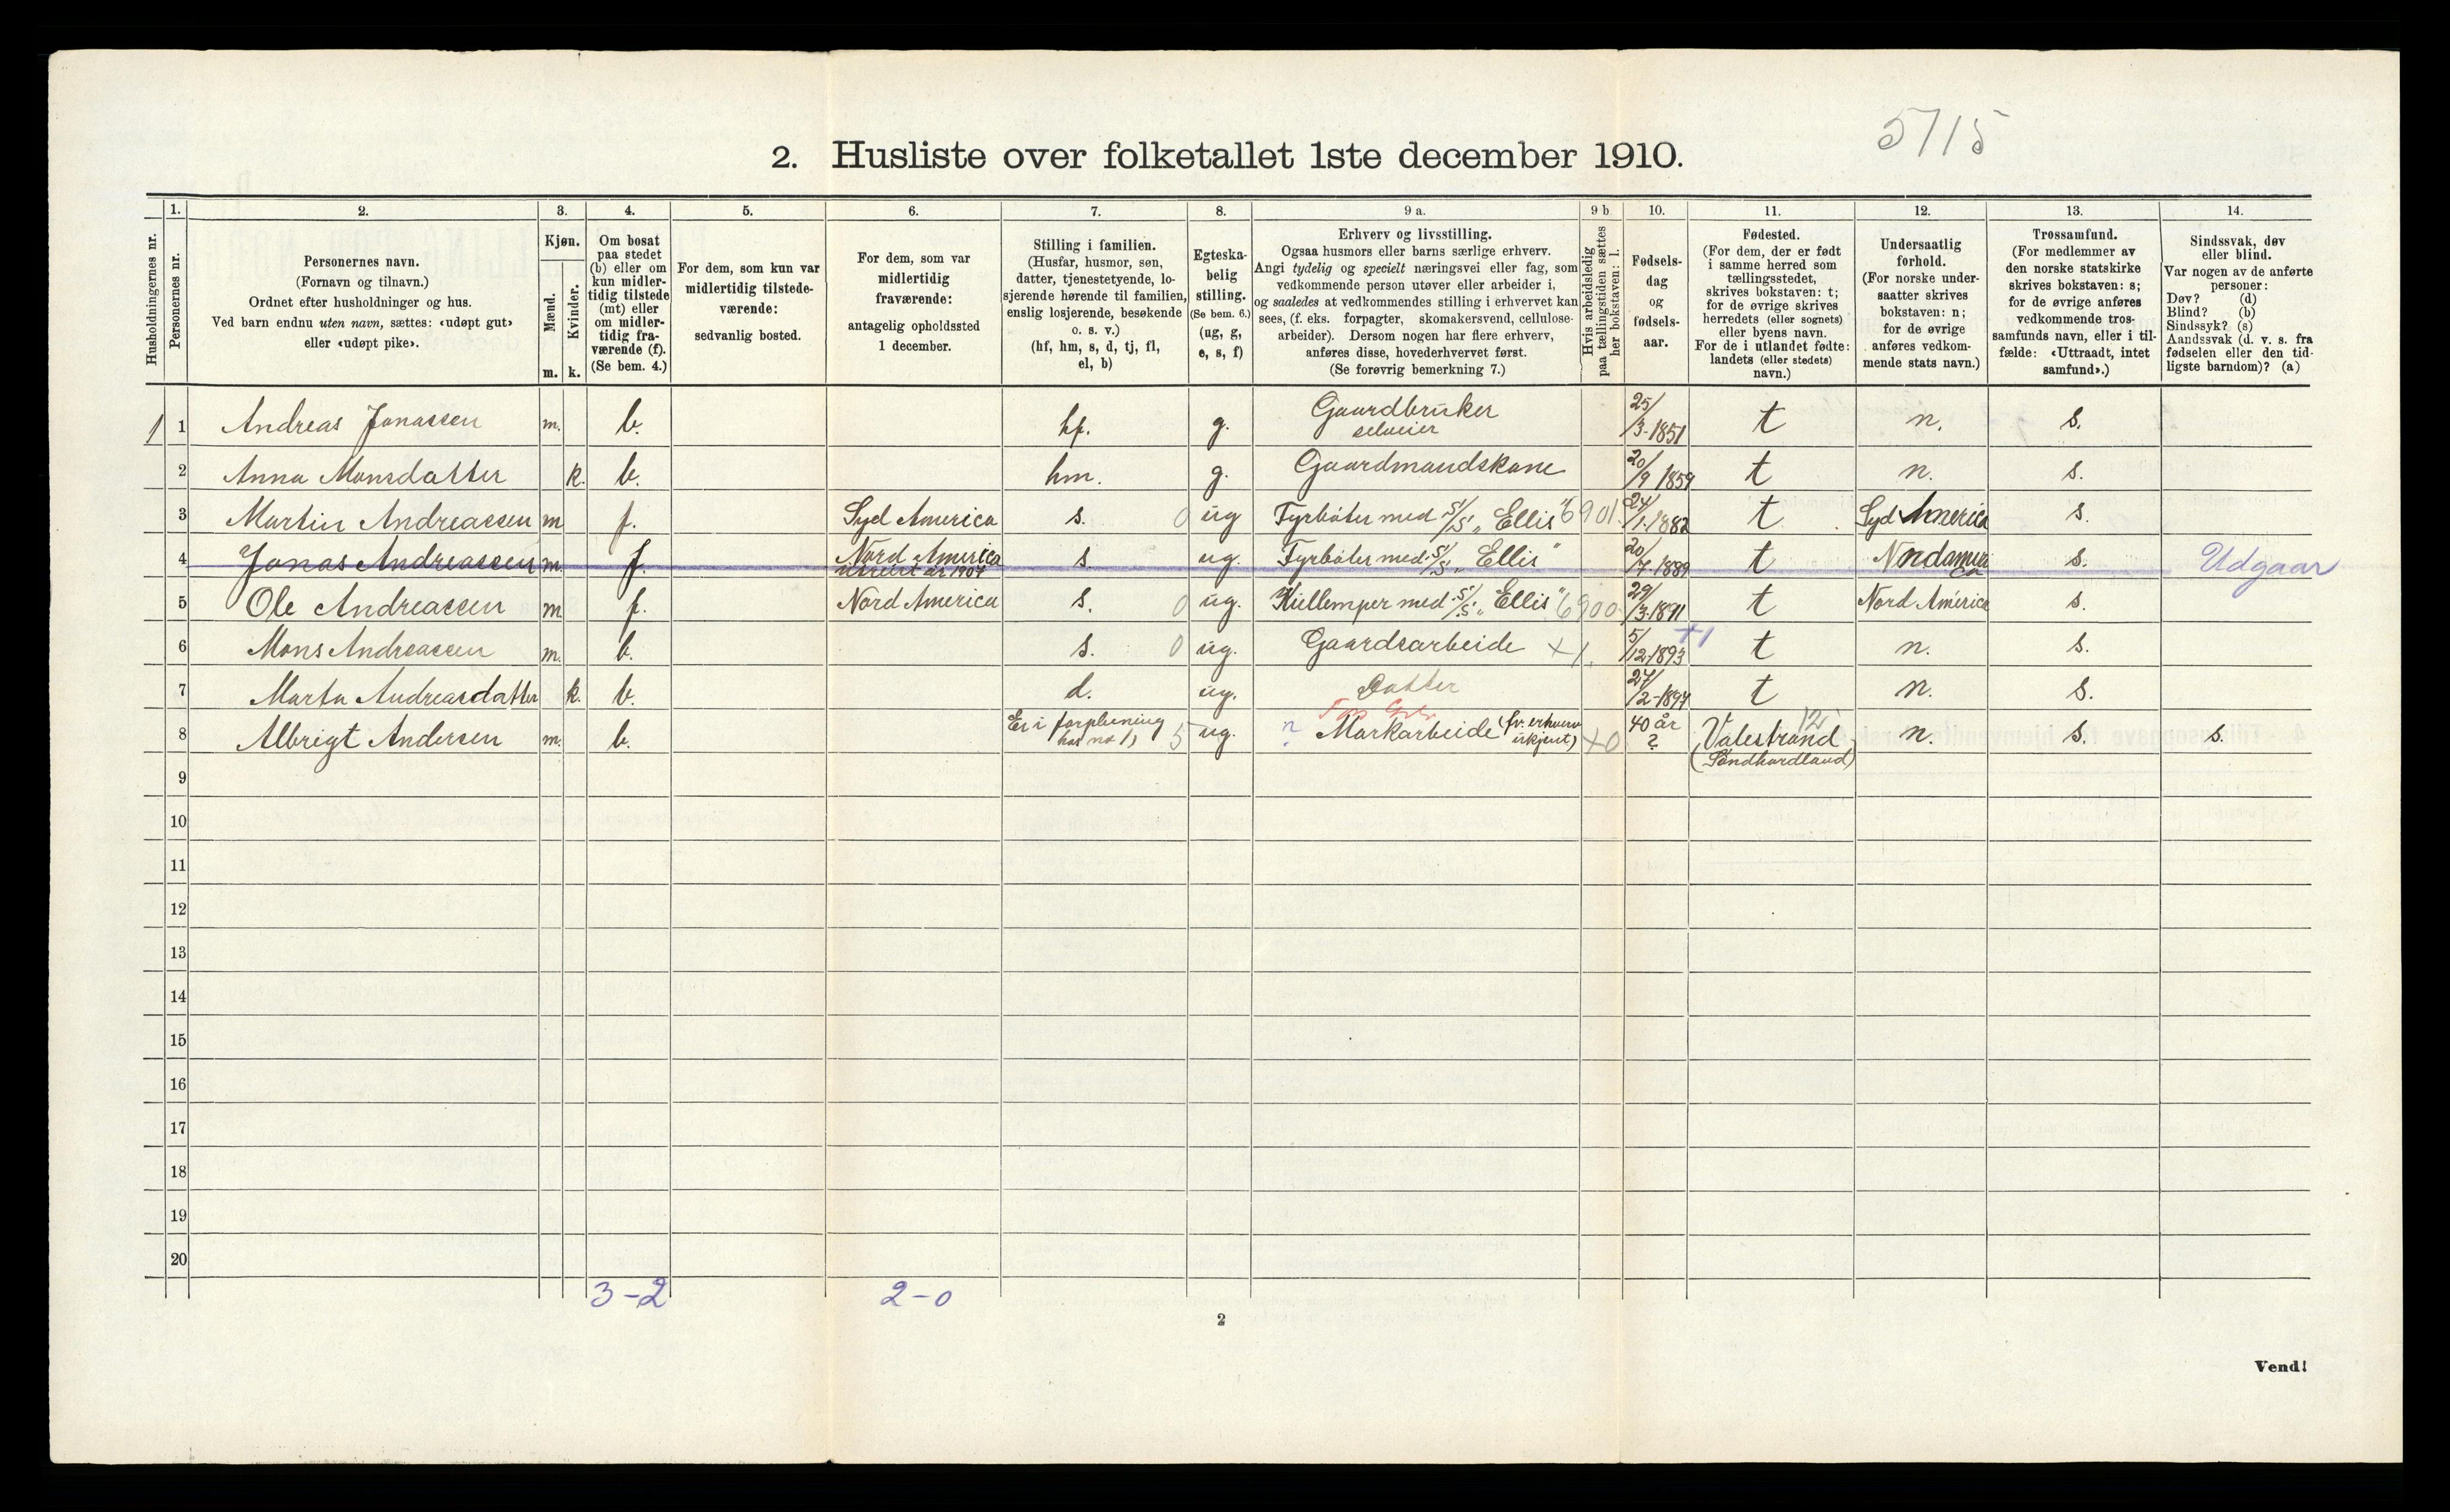 5715
2. Husliste over folketallet 1ste december 1910.
Husholdningernes nr.
1.
Personernes nr.
2.
Personernes navn.
(Fornavn og tilnavn.)
Ordnet efter husholdninger og hus.
Ved barn endnu uten navn, sættes: «udøpt gut»
eller «udøpt pike».
3.
Kjøn.
Mænd.
Kvinder.
m. k.
4.
Om bosat
paa stedet
(b) eller om
kun midler-
tidig tilstede
(mt) eller
om midler-
tidig fra-
værende (f).
(Se bem. 4.)
5.
For dem, som kun var
midlertidig tilstede-
værende:
sedvanlig bosted.
6.
For dem, som var
midlertidig
fraværende:
antagelig opholdssted
1 december.
7.
Stilling i familien.
(Husfar, husmor, søn,
datter, tjenestetyende, lo-
sjerende hørende til familien,
enslig losjerende, besøkende
o. s. v.)
(hf, hm, s, d, tj, fl,
el, b)
8.
Egteska-
belig
stilling.
(Se bem. 6.)
(ug, g,
e, s, f)
9 a.
Erhverv og livsstilling.
Ogsaa husmors eller barns særlige erhverv.
Angi tydelig og specielt næringsvei eller fag, som
vedkommende person utøver eller arbeider i,
og saaledes at vedkommendes stilling i erhvervet kan
sees, (f. eks. forpagter, skomakersvend, cellulose-
arbeider). Dersom nogen har flere erhverv,
anføres disse, hovederhvervet først.
(Se forøvrig bemerkning 7.)
9 b
Hvis arbeidsledig
paa tællingstiden sættes
her bokstaven: l.
10.
Fødsels-
dag
og
fødsels-
aar.
11.
Fødested.
(For dem, der er født
i samme herred som
tællingsstedet,
skrives bokstaven: t;
for de øvrige skrives
herredets (eller sognets)
eller byens navn.
For de i utlandet fødte:
landets (eller stedets)
navn.)
12.
Undersaatlig
forhold.
(For norske under-
saatter skrives
bokstaven: n;
for de øvrige
anføres vedkom-
mende stats navn.)
13.
Trossamfund.
(For medlemmer av
den norske statskirke
skrives bokstaven: s;
for de øvrige anføres
vedkommende tros-
samfunds navn, eller i til-
fælde: «Uttraadt, intet
samfund».)
14.
Sindssvak, døv
eller blind.
Var nogen av de anførte
personer:
Døv? (d)
Blind? (b)
Sindssyk? (s)
Aandssvak (d. v. s. fra
fødselen eller den tid-
ligste barndom)? (a)
1 1 Andreas Jonassen m. b. hf. g. Gaardbruker selveier 25/3-1851 t n. s.
2 Anna Monsdatter k. b. hm. g. Gaardmandskone 20/9 1859 t n. s.
3 Martin Andreassen m f. Syd America s. 0 ug Fyrbøter med S/S. „Ellis" 6901 24/1-1882 t Syd America s.
4 Jonas Andreassen m. f. Nord America 1907 s. ug. Fyrbøter med S/S. „Ellis" 20/7-1889 t Nordamerica s. Udgaar
5 Ole Andreassen m f. Nord America s. 0 ug. Kullemper med S/S. „Ellis" 6900 29/3-1891 t Nord America s.
6 Mons Andreassen m. b. s. 0 ug. Gaardsarbeide +1. 5/12-1893 +1 t n. s.
7 Marta Andreasdatter k. b. d. ug. Datter 27/2-1897 t n. s.
8 Albrigt Andersen m. b. Er i forpleining hos no 1) 5 ug. n Markarbeide (fv. erhverv ukjent) +0 40 år ? Valestrand 12 (Søndhordland) n. s. s.
9
10
11
12
13
14
15
16
17
18
19
20
3-2 2-0
2
Vend!